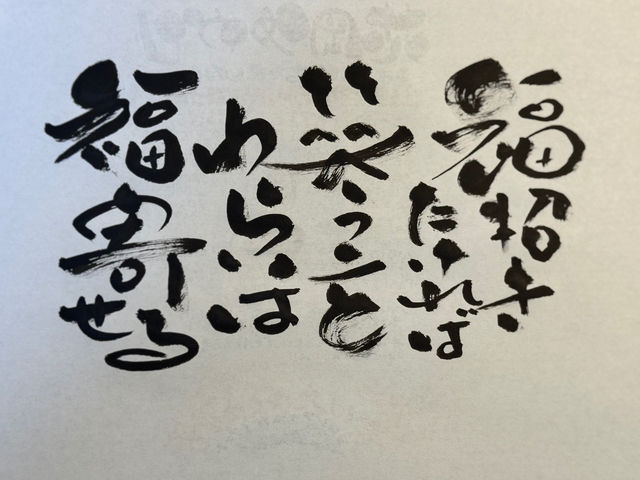 福招き
たければ
笑うこと
わらいは
福寄せる